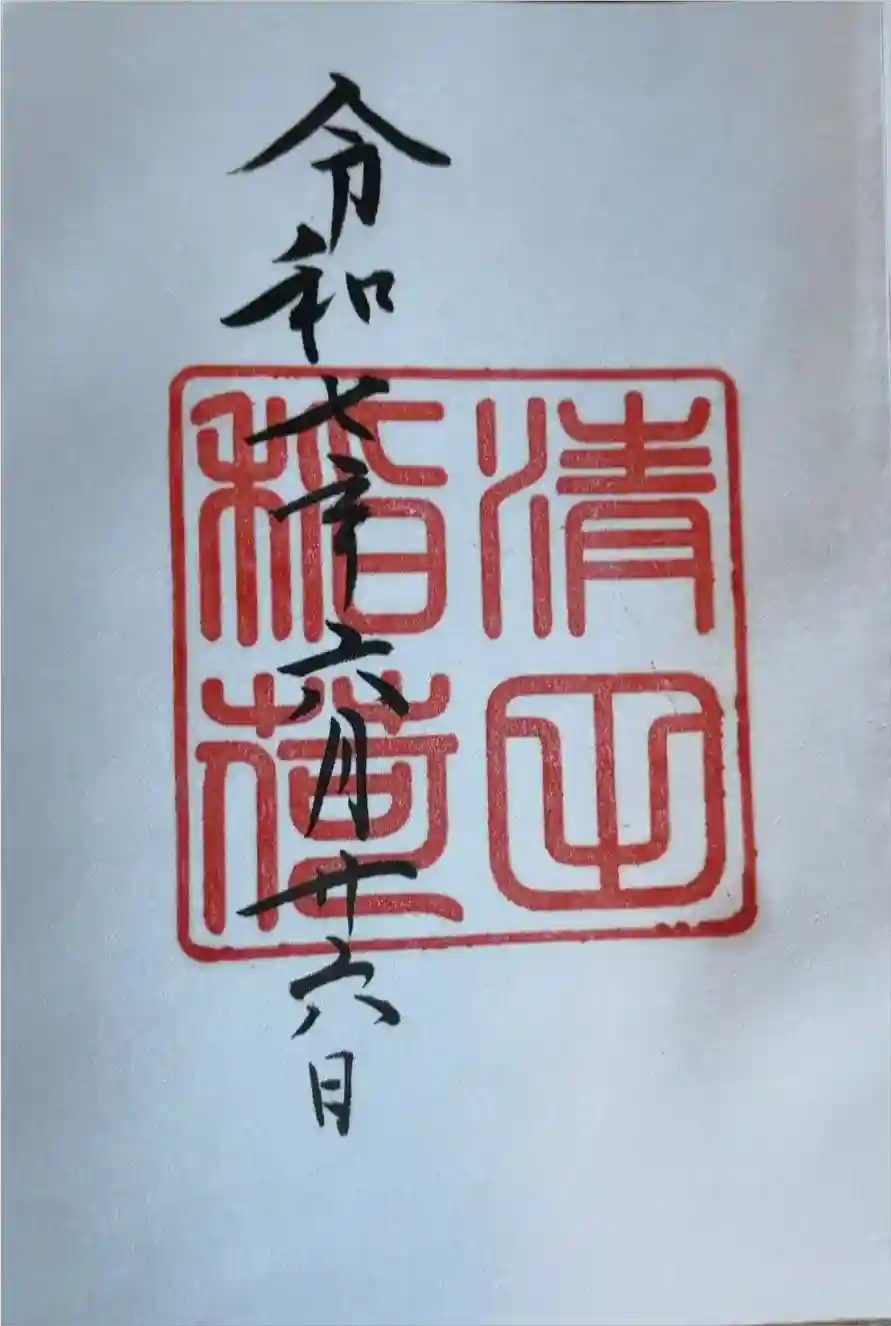 令和七年六月廿六日
清
稲荷